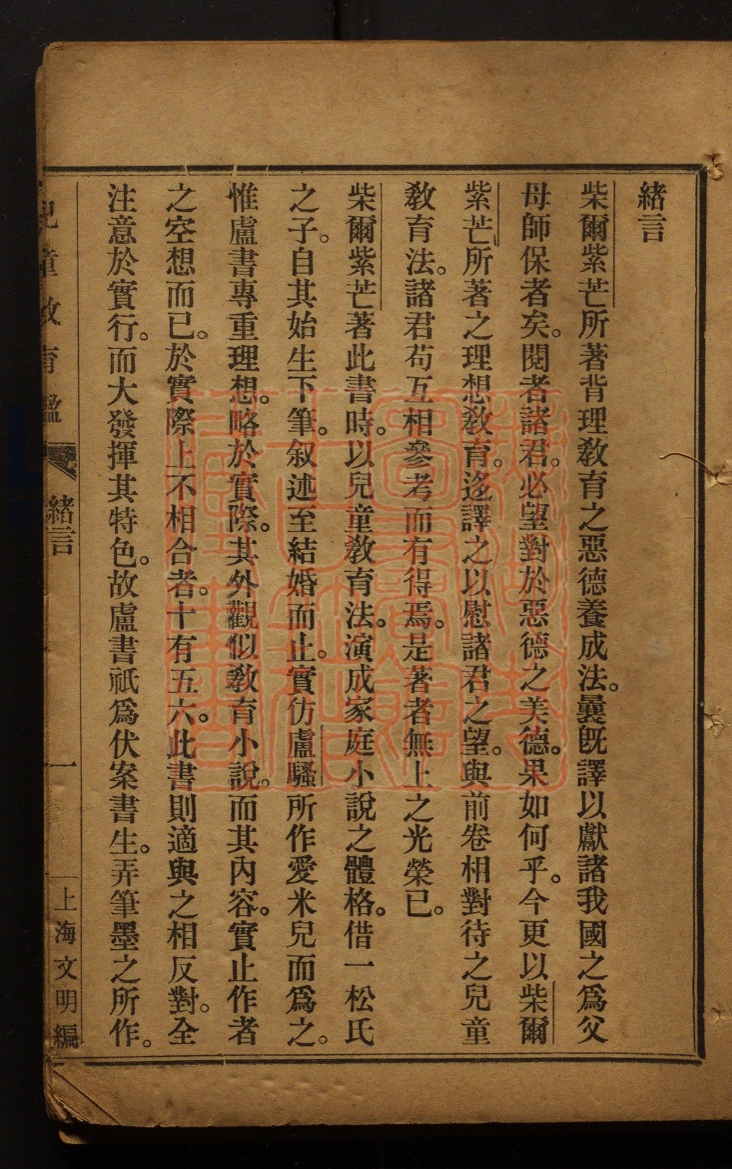 緒言
柴爾紫芒所著背理教育之惡德養成法。曩旣譯以獻諸我國之爲父
母師保者矣。閱者諸君。必望對於惡德之美德。果如何乎。今更以柴爾
紫芒所著之理想教育。迻譯之以慰諸君之望。與前卷相對待之兒童
教育法。諸君苟互相參考而有得焉。是著者無上之光榮已。
柴爾紫芒著此書時。以兒童教育法。演成家庭小說之體格。借一松氏
之子。自其始生下筆。叙述至結婚而止。實仿盧騷所作愛米兒而爲之。
惟盧書專重理想。略於實際。其外觀似教育小說。而其內容。實止作者
之空想而已。於實際上不相合者。十有五六。此書則適與之相反對。全
注意於實行。而大發揮其特色。故盧書祇爲伏案書生。弄筆墨之所作。
兒童教育鑑
緒言
一
上海文明編